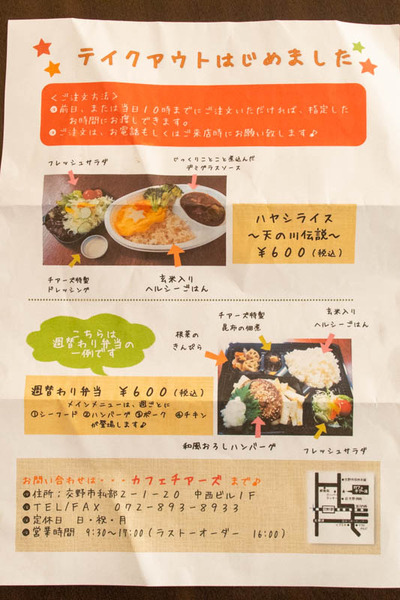 テイクアウトはじめました
＜ご注文方法＞
●前日、または当日10時までにご注文いただければ、指定した
お時間にお渡しできます。
●ご注文は、お電話もしくはご来店時にお願い致します♪
フレッシュサラダ
じっくりことこと煮込んだ
デミグラスソース
ハヤシライス
～天の川伝説～
￥600（税込）
チアーズ特製
ドレッシング
玄米入り
ヘルシーごはん
こちらは
週替わり弁当の
一例です
根菜の
きんぴら
チアーズ特製
昆布の佃煮
玄米入り
ヘルシーごはん
週替わり弁当 ￥600（税込）
メインメニューは、週ごとに
①シーフード ②ハンバーグ ③ポーク ④チキン
が登場します♪
和風おろしハンバーグ
フレッシュサラダ
お問い合わせは・・・カフェチアーズ まで♪
●住所：交野市私部2－1－20 中西ビル1F
●TEL/FAX 072－893－8933
●定休日 日・祝・月
●営業時間 9:30～17:00（ラストーオーダー 16:00）